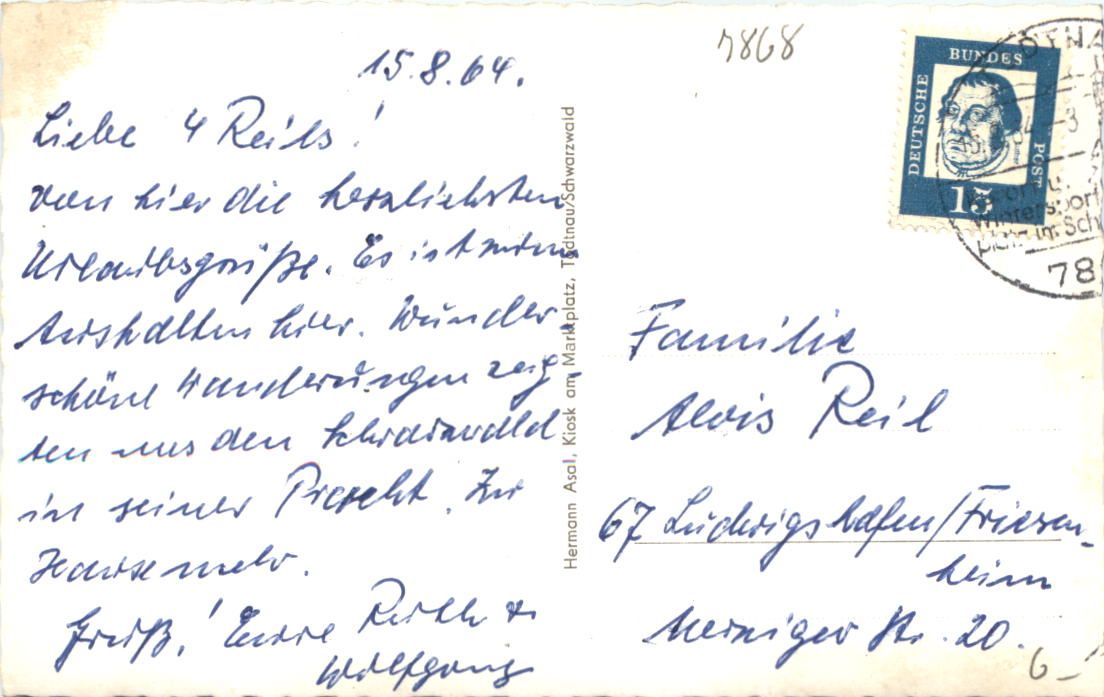 15.8.64.
Liebe 4 Reils!
von hier die herzlichsten
Urlaubsgrüße. Es ist zum
Aushalten hier. Wunder-
schöne Wanderungen zeig-
ten uns den Schwarzwald
in seiner Pracht. Zu
Hause mehr.
Gruß! Eure Ruth &
Wolfgang
Hermann Asal, Kiosk am Marktplatz, Todtnau/Schwarzwald
7868
DEUTSCHE BUNDES POST
15
Wintersport
platz im Sch
78
Familie
Alois Reil
67 Ludwigshafen/Friesen-
heim
Str. 20.
6-